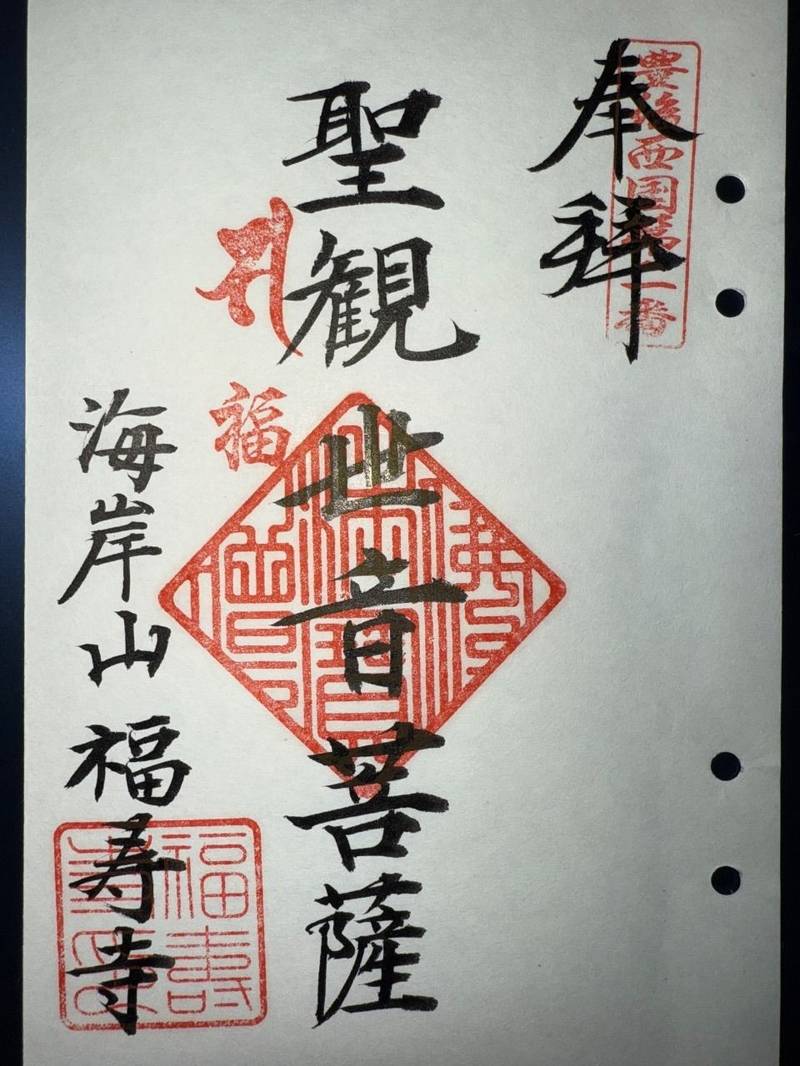 奉拝
豊後西国第番
聖観世音菩薩
福
海岸山福寿寺
福壽